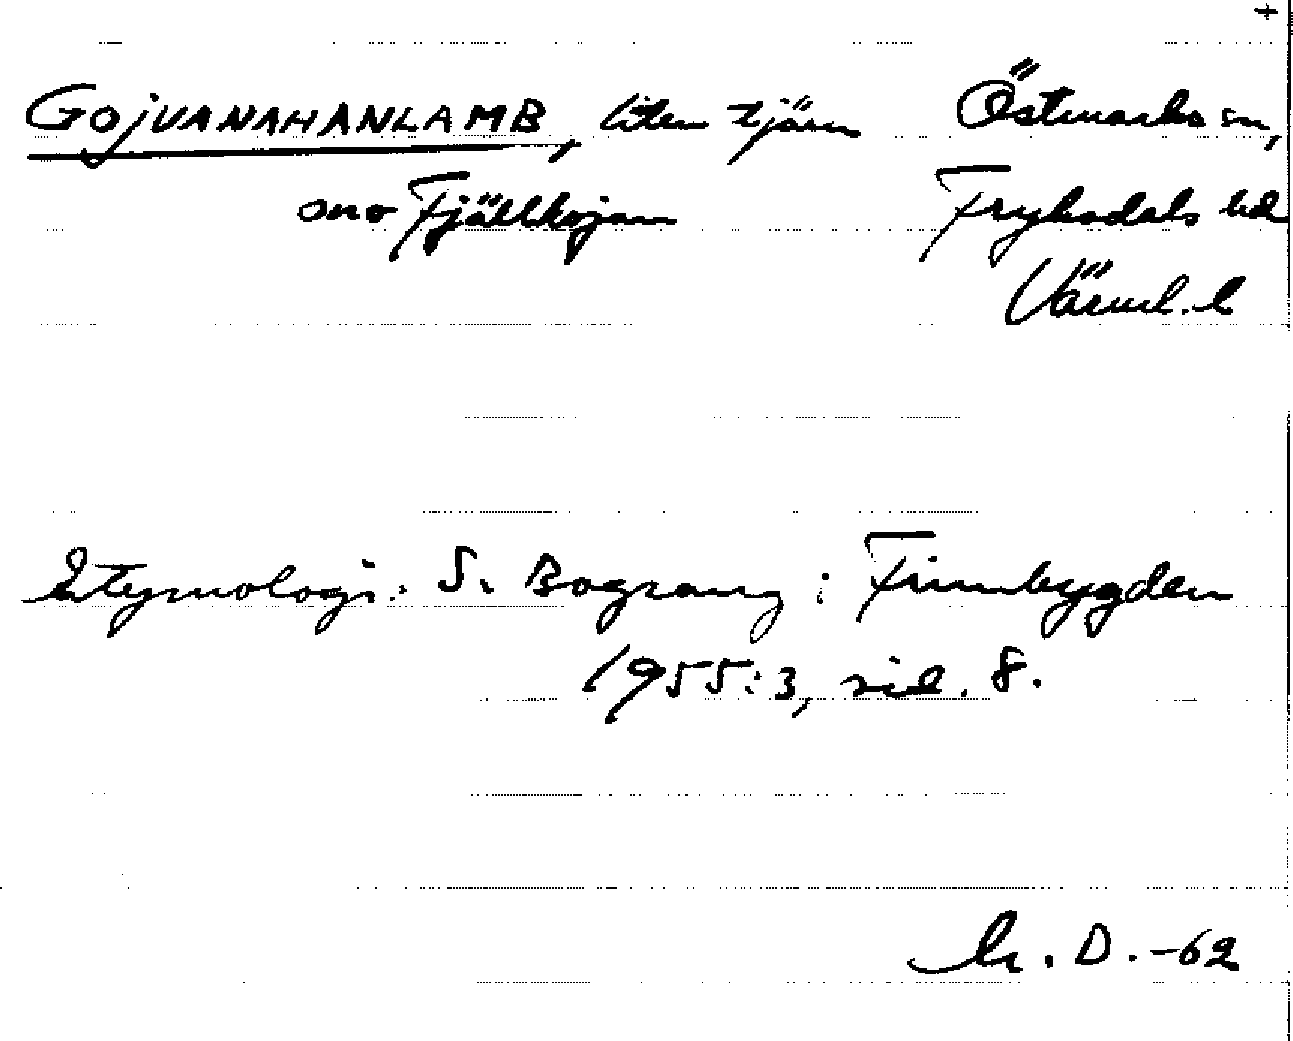 +
GOJVANAHANLAMB, liten tjärn Östmarks sn,
ono Fjällkojan Fryksdals hd
Värml. l
Etymologi: S. Bograng : Finnbygden
1955:3, sid. 8.
D. -62